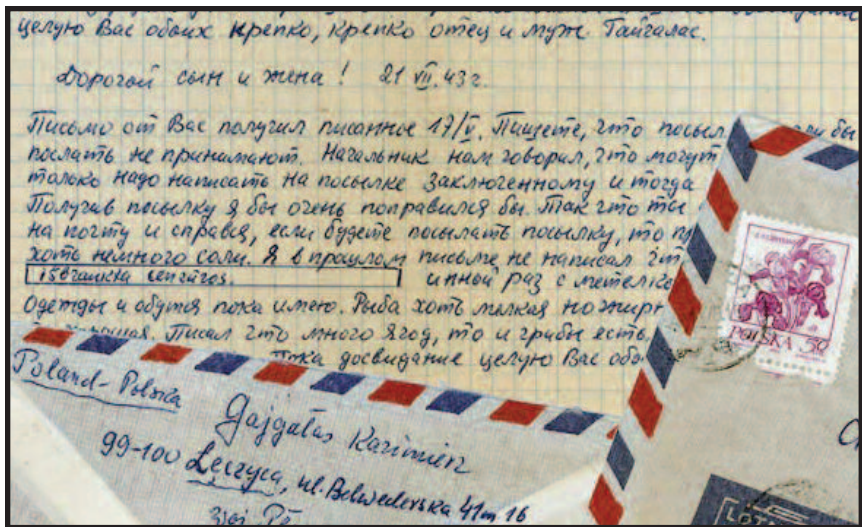 целую Вас обоих крепко, крепко отец и муж. Гайгалас.
Дорогой сын и жена! 21 VII. 43 г.
Письмо от Вас получил писанное 17/V. Пишете, что посыл бы
послать не принимают. Начальник нам говорил, что могут
только надо написать на посылке Заключенному и тогда
Получив посылку я бы очень поправился бы. Так что ты
на почту и справься, если будете посылать посылку, то
хоть немного соли. Я в прошлом письме не написал
иной раз с метелкой
Одежды и обутся пока имею. Рыба хоть мелкая но жирн
Писал что много ягод, то и грибы есть.
Пока досвидание целую Вас обо
Poland-Polska
Gajgalas Kazimierz
99-100 Łęczyca, ul. Belwederska 41 m 16
POLSKA 50